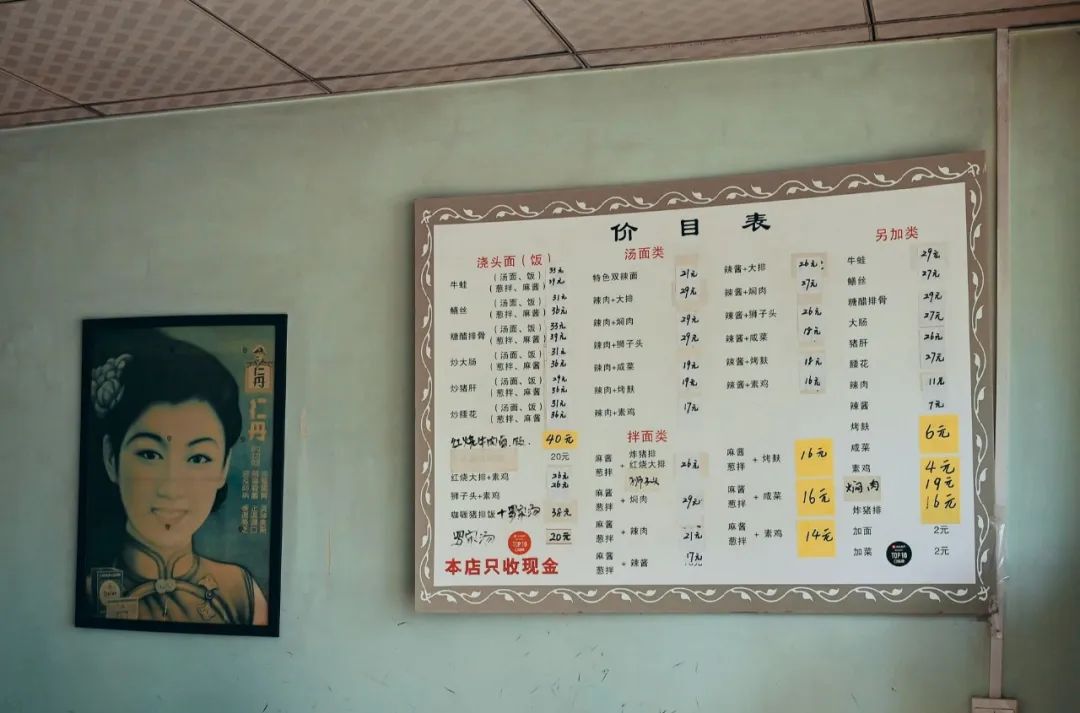 价目表
浇头面（饭）
牛蛙 （汤面、饭） 33元
（葱拌、麻酱） 39元
鳝丝 （汤面、饭） 31元
（葱拌、麻酱） 36元
糖醋排骨 （汤面、饭） 33元
（葱拌、麻酱） 39元
炒大肠 （汤面、饭） 31元
（葱拌、麻酱） 36元
炒猪肝 （汤面、饭） 29元
（葱拌、麻酱） 36元
炒腰花 （汤面、饭） 31元
（葱拌、麻酱） 36元
红烧牛肉面.饭. 40元
20元
红烧大排+素鸡 26元
狮子头+素鸡 26元
咖喱猪排饭+罗宋汤 38元
罗宋汤 20元
TOP 10
本店只收现金
汤面类
特色双辣面 21元
辣肉+大排 29元
辣肉+焖肉 29元
辣肉+狮子头 29元
辣肉+咸菜 19元
辣肉+烤麸 19元
辣肉+素鸡 17元
辣酱+大排 26元
辣酱+焖肉 27元
辣酱+狮子头 26元
辣酱+咸菜 18元
辣酱+烤麸 18元
辣酱+素鸡 16元
拌面类
麻酱 葱拌 + 炸猪排 红烧大排 狮子头 26元
麻酱 葱拌 + 焖肉 29元
麻酱 葱拌 + 辣肉 21元
麻酱 葱拌 + 辣酱 17元
麻酱 葱拌 + 烤麸 16元
麻酱 葱拌 + 咸菜 16元
麻酱 葱拌 + 素鸡 14元
另加类
牛蛙 29元
鳝丝 27元
糖醋排骨 29元
大肠 27元
猪肝 26元
腰花 27元
辣肉 11元
辣酱 7元
烤麸 6元
咸菜
素鸡 4元
焖肉 19元
炸猪排 16元
加面 2元
加菜 2元
TOP 10
仁丹
仁丹